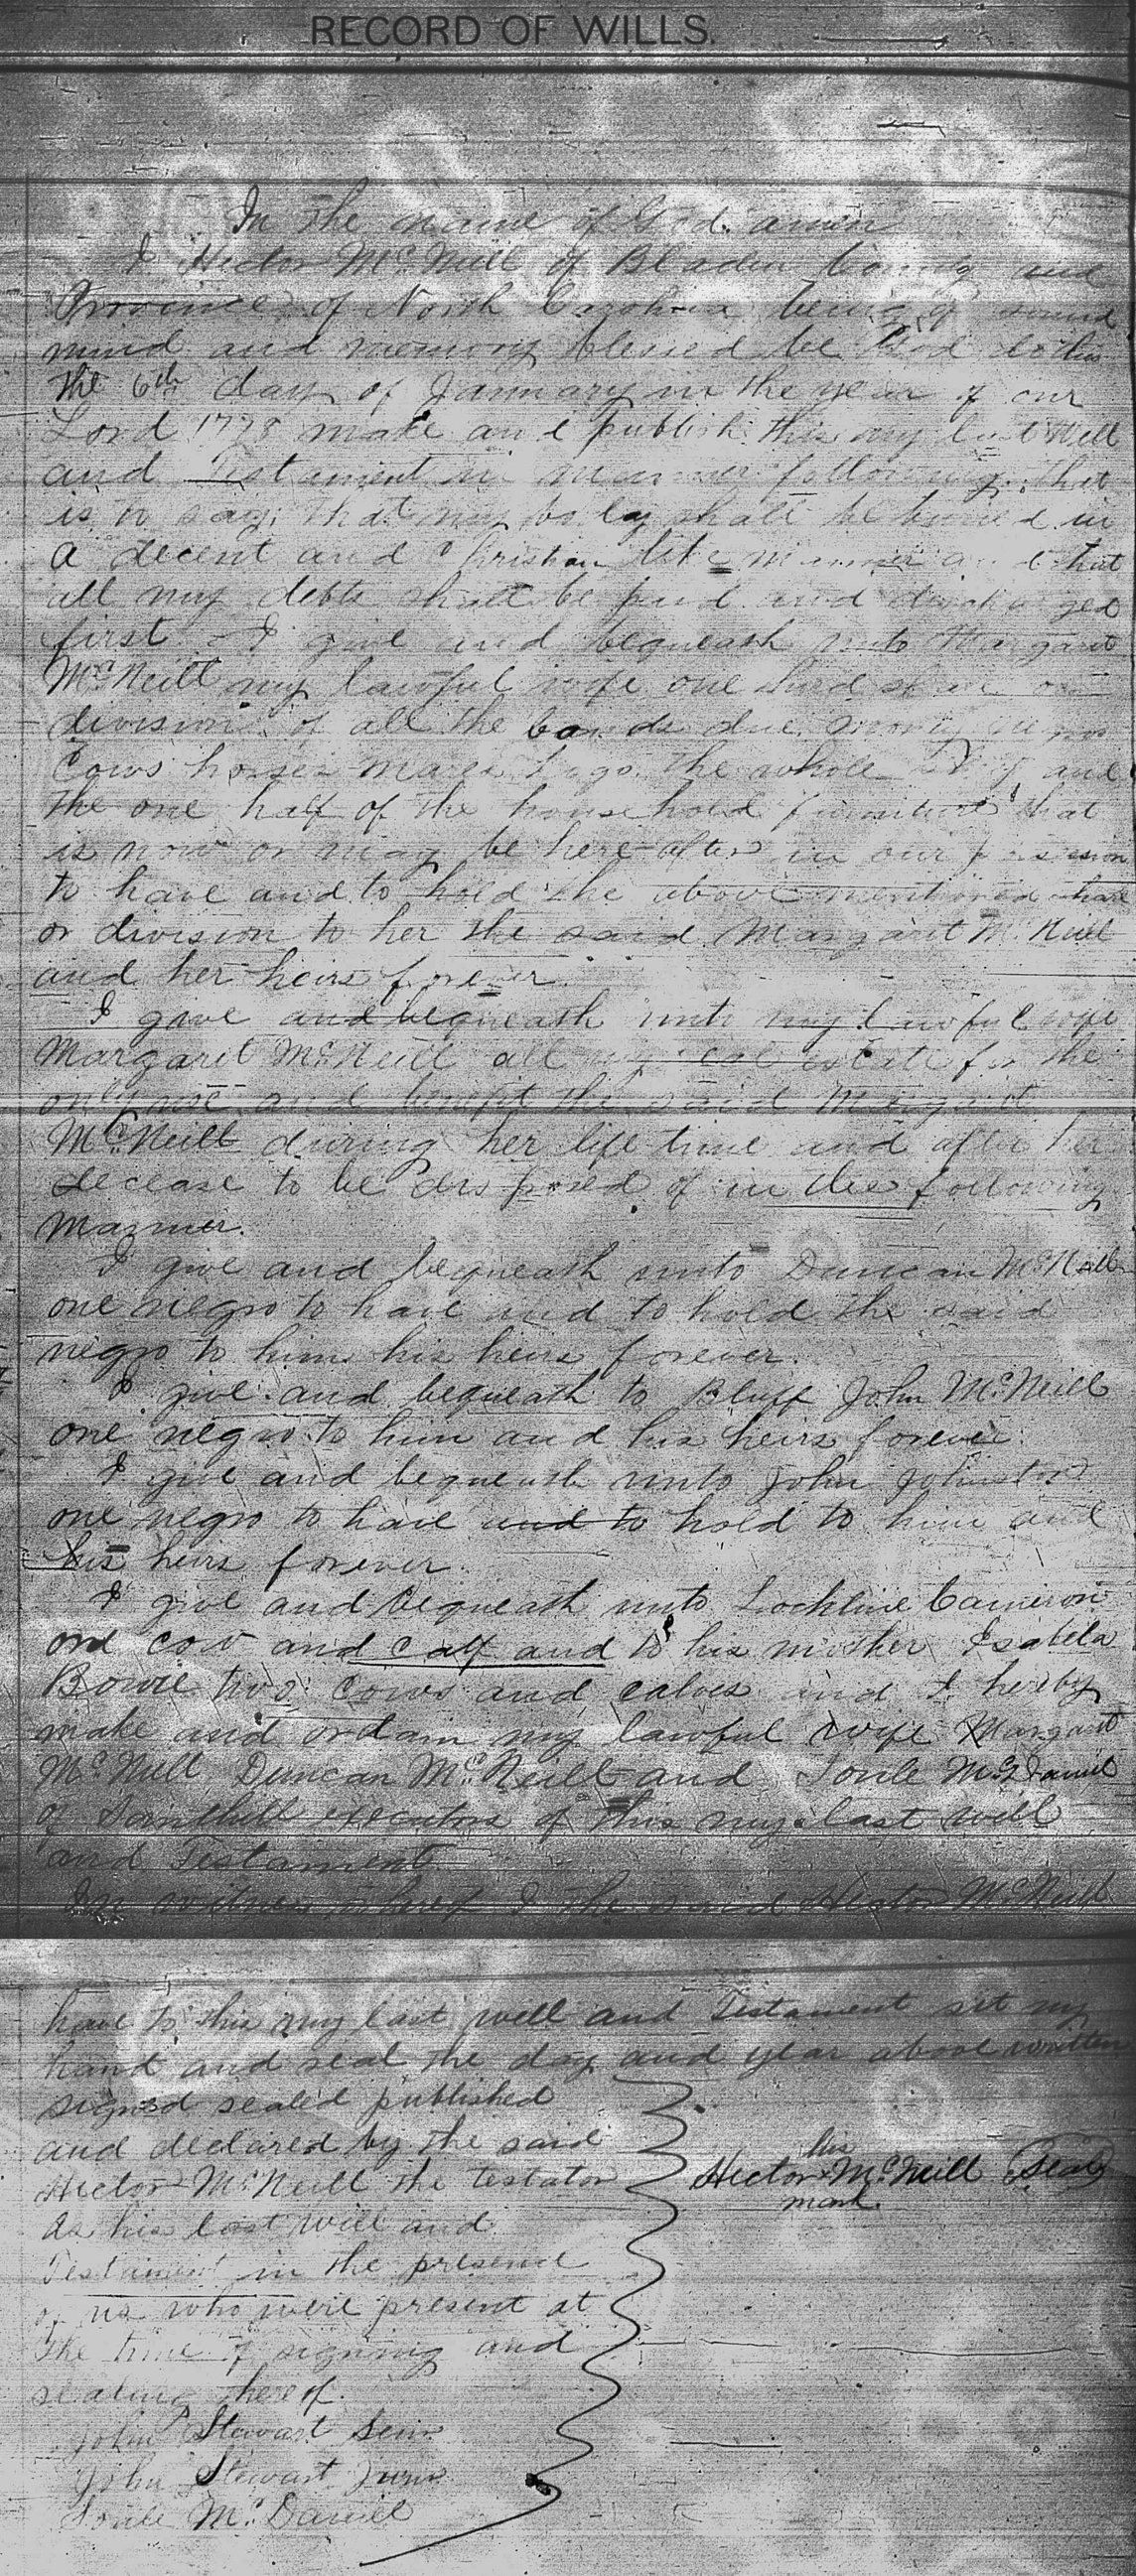 RECORD OF WILLS.
In the name of God. amen
I Hector McNeill of Bladen County and
Province of North Carolina being of sound
mind and memory blessed be God do this
the 6th day of January in the year of our
Lord 1778 make and publish this my last Will
and Testament in manner following, that
is to say; that my body shall be buried in
a decent and Christian like manner and that
all my debts shall be paid and discharged
first I give and bequeath unto Margaret
McNeill my lawful wife one third share or
division of all the bonds due money
Cows horses mares hogs the whole and
the one half of the household furniture that
is now or may be here after in our possession
to have and to hold the above mentioned share
or division to her the said Margaret McNeill
and her heirs forever.
I give and bequeath unto my lawful wife
Margaret McNeill all my real estate for the
only use and benefit the said Margaret
McNeill during her life time and after her
decease to be disposed of in the following
manner.
I give and bequeath unto Duncan McNeill
one negro to have and to hold the said
negro to him his heirs forever.
I give and bequeath to Bluff John McNeill
one negro to him and his heirs forever
I give and bequeath unto John Johnston
one negro to have and to hold to him and
his heirs forever
I give and bequeath unto Lochline Cameron
one cow and calf and to his mother Isabela
Bowie two cows and calves and I herby
make and ordain my lawful wife Margaret
McNeill Duncan McNeill and McDaniel
of executors of this my last will
and Testament
In witness whereof I the said Hector McNeill
have to this my last well and Testament set my
hand and seal the day and year above written
signed sealed published
and declared by the said
Hector McNeill the testator
as his last will and
Testament in the presence
of us who were present at
the time of signing and
sealing thereof.
his
Hector x McNeill (Seal)
mark.
John Stewart Senr
John Stewart Junr
McDaniel